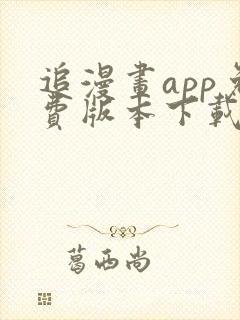 追漫畫app免
費版本下載
葛西尚